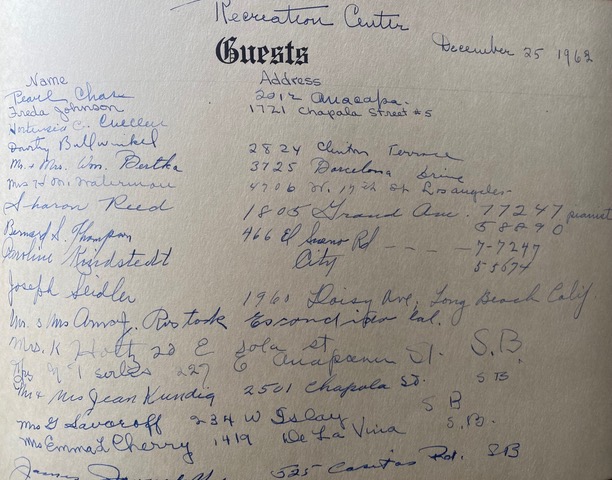 Recreation Center
Guests
December 25 1962
Name Address
Pearl Chase 2012 Anacapa.
Freda Johnson 1721 Chapala Street #5
Hortensia C. Cuellar
Dorothy Ballwinkel 2824 Clinton Terrace
Mr. & Mrs. Wm. Bertka 3725 Barcelona Drive
Mrs H. M. Waterman 4706 W. 17th St Los Angeles
Sharon Reed 1805 Grand Ave. 77247 pianist
Bernard S. Thompson 466 El Sueno Rd 58890
Caroline Kindstedt City 7-7247
55674
Joseph Seidler 1960 Daisy Ave, Long Beach Calif
Mr. & Mrs Arno J. Rostock Escondido Cal.
Mrs. K Holtz 20 E Sola St S.B.
227 E Anapamu St.
Mr & Mrs Jean Kundig 2501 Chapala St. SB
Mrs G Savoroff 234 W Islay S B
Mrs Emma L Cherry 1419 De La Vina S.B.
James 525 Casitas Rd. SB